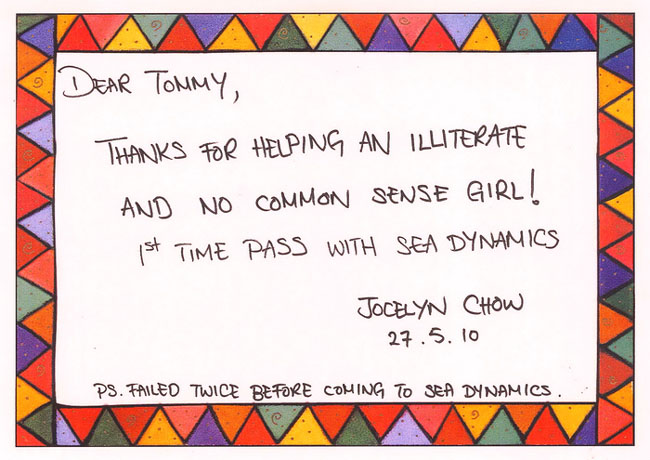 DEAR TOMMY,
THANKS FOR HELPING AN ILLITERATE
AND NO COMMON SENSE GIRL!
1st TIME PASS WITH SEA DYNAMICS
JOCELYN CHOW
27.5.10
PS. FAILED TWICE BEFORE COMING TO SEA DYNAMICS.